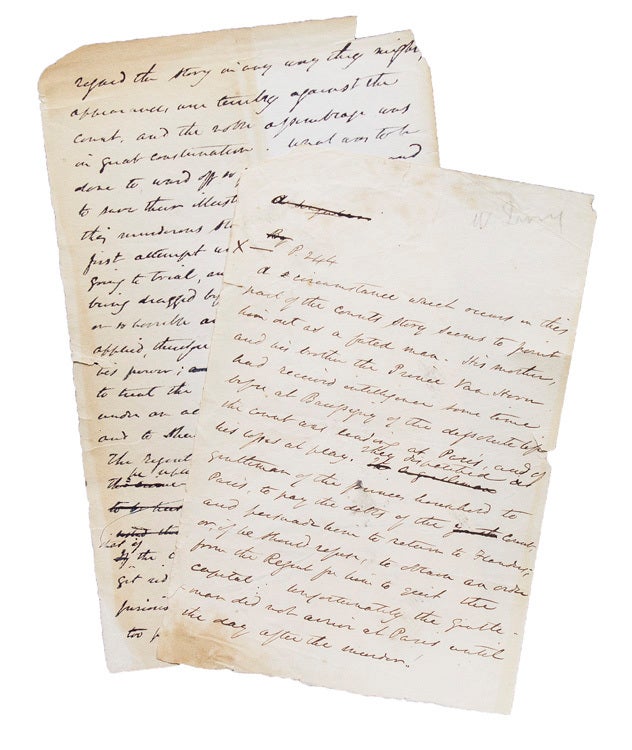 regard the story in any way they might,
appearances, were terribly against the
count, and the noble assemblage was
in great consternation. What was to be
done to ward off so
to save their
this murderous
first attempt
going to trial, an
being dragged by
or so horrible
applied, therefore
his power;
to treat the
under an ac
and to
the Regent
be
that of
the
get rid
furious
too
W Irving
P. 244
X — A circumstance which occurs in this
part of the counts story seems to point
him out as a fated man. His mother,
and his brother the Prince Van Horn
had received intelligence some time
before at Baussigny of the dissolute life
the count was leading at Paris, and of
his losses at play. They dispatched a
gentleman of the Princes household to
Paris, to pay the debts of the count,
and persuade him to return to Flanders;
or, if he should refuse, to obtain an order
from the Regent for him to quit the
capital. Unfortunately the gentle-
man did not arrive at Paris until
the day after the murder!